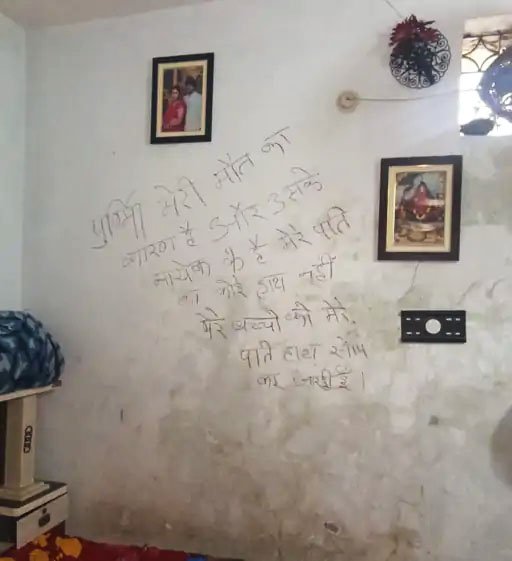 मेरी मौत का
कारण है और उसके
है मेरे पति
का कोई हाथ नहीं
मेरे बच्चो को मेरे
पति हाथ
कर है।